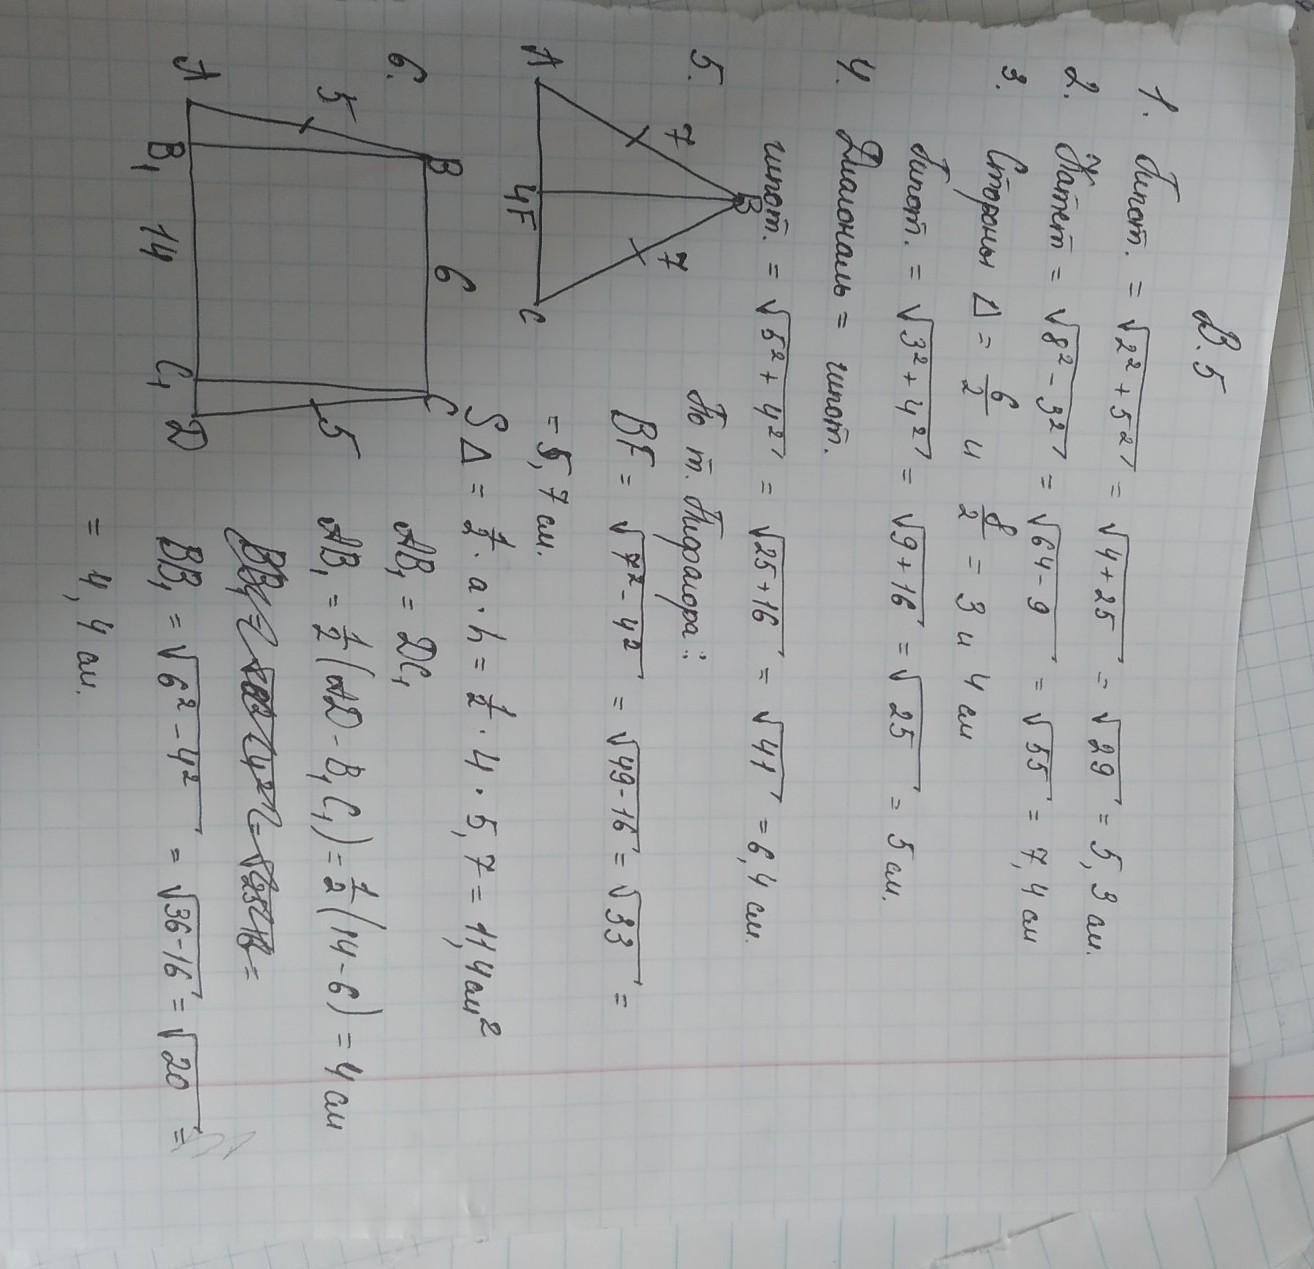 В. 5
1. Гипот. = √2² + 5² = √4 + 25 = √29 = 5,3 см.
2. Катет = √8² - 3² = √64 - 9 = √55 = 7,4 см
3. Стороны Δ = 6/2 и 8/2 = 3 и 4 см
Гипот. = √3² + 4² = √9 + 16 = √25 = 5 см.
4. Диагональ = гипот.
гипот. = √5² + 4² = √25 + 16 = √41 = 6,4 см.
5. По т. Пифагора:
BF = √7² - 4² = √49 - 16 = √33 =
= 5,7 см.
S Δ = 1/2 · a · h = 1/2 · 4 · 5,7 = 11,4 см²
A
7
B
7
4F
C
6.
AB₁ = DC₁
AB₁ = 1/2 (AD - B₁C₁) = 1/2 (14 - 6) = 4 см
BB₁ = √6² - 4² = √36 - 16 = √20 =
= 4,4 см.
B
6
C
5
5
A
B₁
14
C₁
D